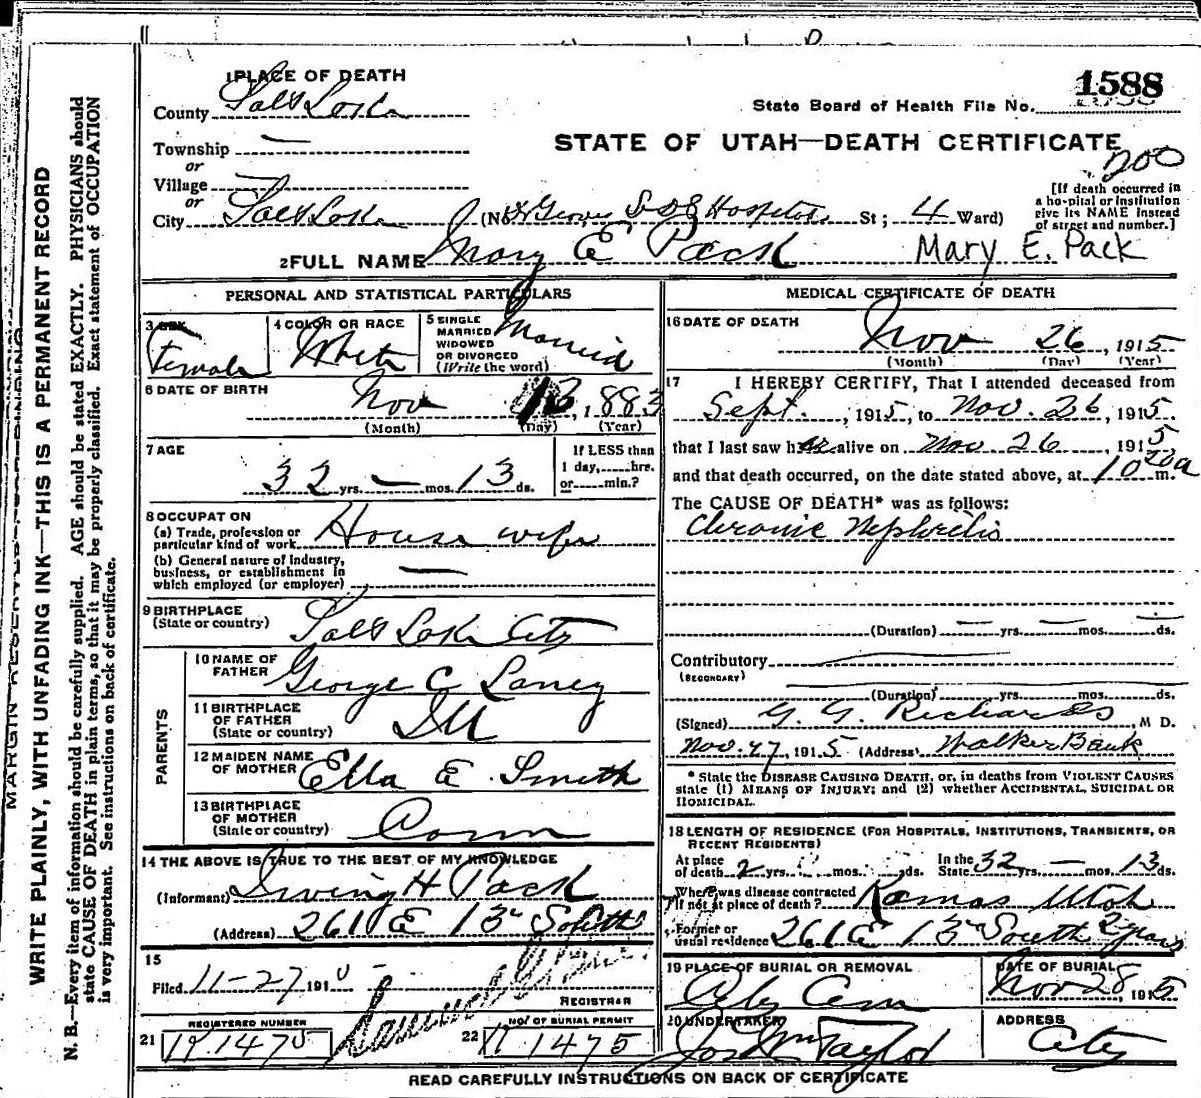 1588
State Board of Health File No.
STATE OF UTAH—DEATH CERTIFICATE
200
1 PLACE OF DEATH
County Salt Lake
Township —
or
Village —
or
City Salt Lake (No. Hospital St; 4 Ward)
[If death occurred in a hospital or institution give its NAME instead of street and number.]
2 FULL NAME Mary E Pack Mary E. Pack
PERSONAL AND STATISTICAL PARTICULARS
3 SEX Female
4 COLOR OR RACE White
5 SINGLE MARRIED WIDOWED OR DIVORCED (Write the word) Married
6 DATE OF BIRTH Nov 13, 1883
(Month) (Day) (Year)
7 AGE
32 yrs. — mos. 13 ds.
If LESS than 1 day,......hrs. or......min.?
8 OCCUPATION
(a) Trade, profession or particular kind of work House wife
(b) General nature of industry, business, or establishment in which employed (or employer) —
9 BIRTHPLACE (State or country) Salt Lake City
PARENTS
10 NAME OF FATHER George C Laney
11 BIRTHPLACE OF FATHER (State or country) Ill
12 MAIDEN NAME OF MOTHER Ella E. Smith
13 BIRTHPLACE OF MOTHER (State or country) Conn
14 THE ABOVE IS TRUE TO THE BEST OF MY KNOWLEDGE
(Informant) Irving H Pack
(Address) 261 E 13th South
15
Filed 11-27 191
REGISTRAR
21 REGISTERED NUMBER 1475
22 NO. OF BURIAL PERMIT 1475
MEDICAL CERTIFICATE OF DEATH
16 DATE OF DEATH
Nov 26, 1915
(Month) (Day) (Year)
17 I HEREBY CERTIFY, That I attended deceased from
Sept. , 1915, to Nov. 26, 1915.
that I last saw her alive on Nov 26, 1915
and that death occurred, on the date stated above, at 10 20 a m.
The CAUSE OF DEATH* was as follows:
Chronic Nephritis
(Duration) — yrs. — mos. — ds.
Contributory
(SECONDARY)
(Duration) yrs. mos. ds.
(Signed) G. G. Richards, M D.
Nov. 27, 1915 (Address) Walker Bank
* State the DISEASE CAUSING DEATH, or, in deaths from VIOLENT CAUSES state (1) MEANS OF INJURY; and (2) whether ACCIDENTAL, SUICIDAL OR HOMICIDAL.
18 LENGTH OF RESIDENCE (FOR HOSPITALS, INSTITUTIONS, TRANSIENTS, OR RECENT RESIDENTS)
At place of death 2 yrs. mos. ds. In the State 32 yrs. — mos. 13 ds.
Where was disease contracted if not at place of death? Kamas Utah
Former or usual residence 261 E 13th South 2 years
19 PLACE OF BURIAL OR REMOVAL City Cem
DATE OF BURIAL Nov 28, 1915
20 UNDERTAKER Jos Wm Taylor
ADDRESS City
READ CAREFULLY INSTRUCTIONS ON BACK OF CERTIFICATE
MARGIN RESERVED FOR BINDING
WRITE PLAINLY, WITH UNFADING INK—THIS IS A PERMANENT RECORD
N. B.—Every item of information should be carefully supplied. AGE should be stated EXACTLY. PHYSICIANS should
state CAUSE OF DEATH in plain terms, so that it may be properly classified. Exact statement of OCCUPATION
is very important. See instructions on back of certificate.